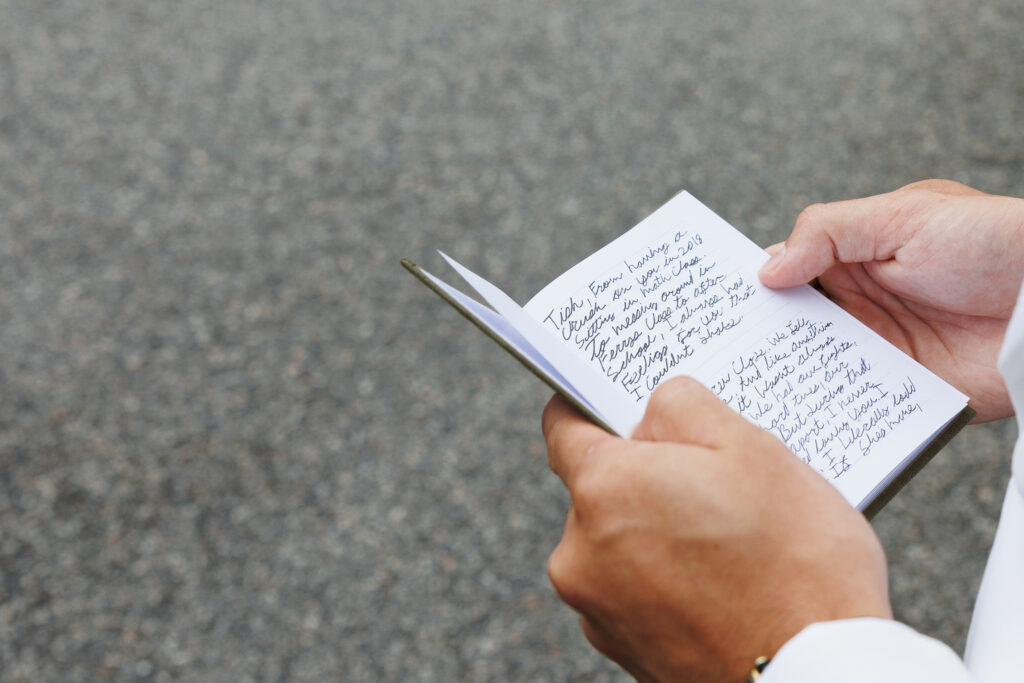 Tish, From having a
crush on you in 2018
Sitting in math class.
To messing around in
Ferras class to after
School, I always had
Feelings for you that
I couldn't shake.
Close. We fell
And like anything
it wasn't always
We had our fights,
hard times, our
But during that
apart I never
loving you. I
I literally told
It Shes here,